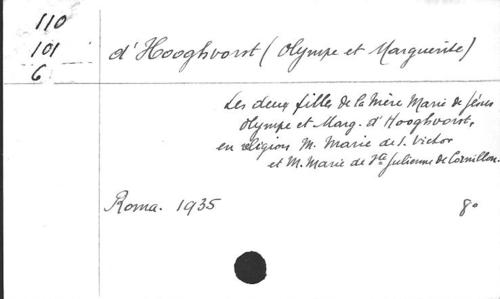 110
101
6
d'Hooghvorst (Olympe et Marguerite)
Les deux filles de la Mère Marie de Jésus
Olympe et Marg. d'Hooghvorst,
en religion M. Marie de S. Victor
et M. Marie de Ste Julienne de Cornillon.
Roma. 1935
8º